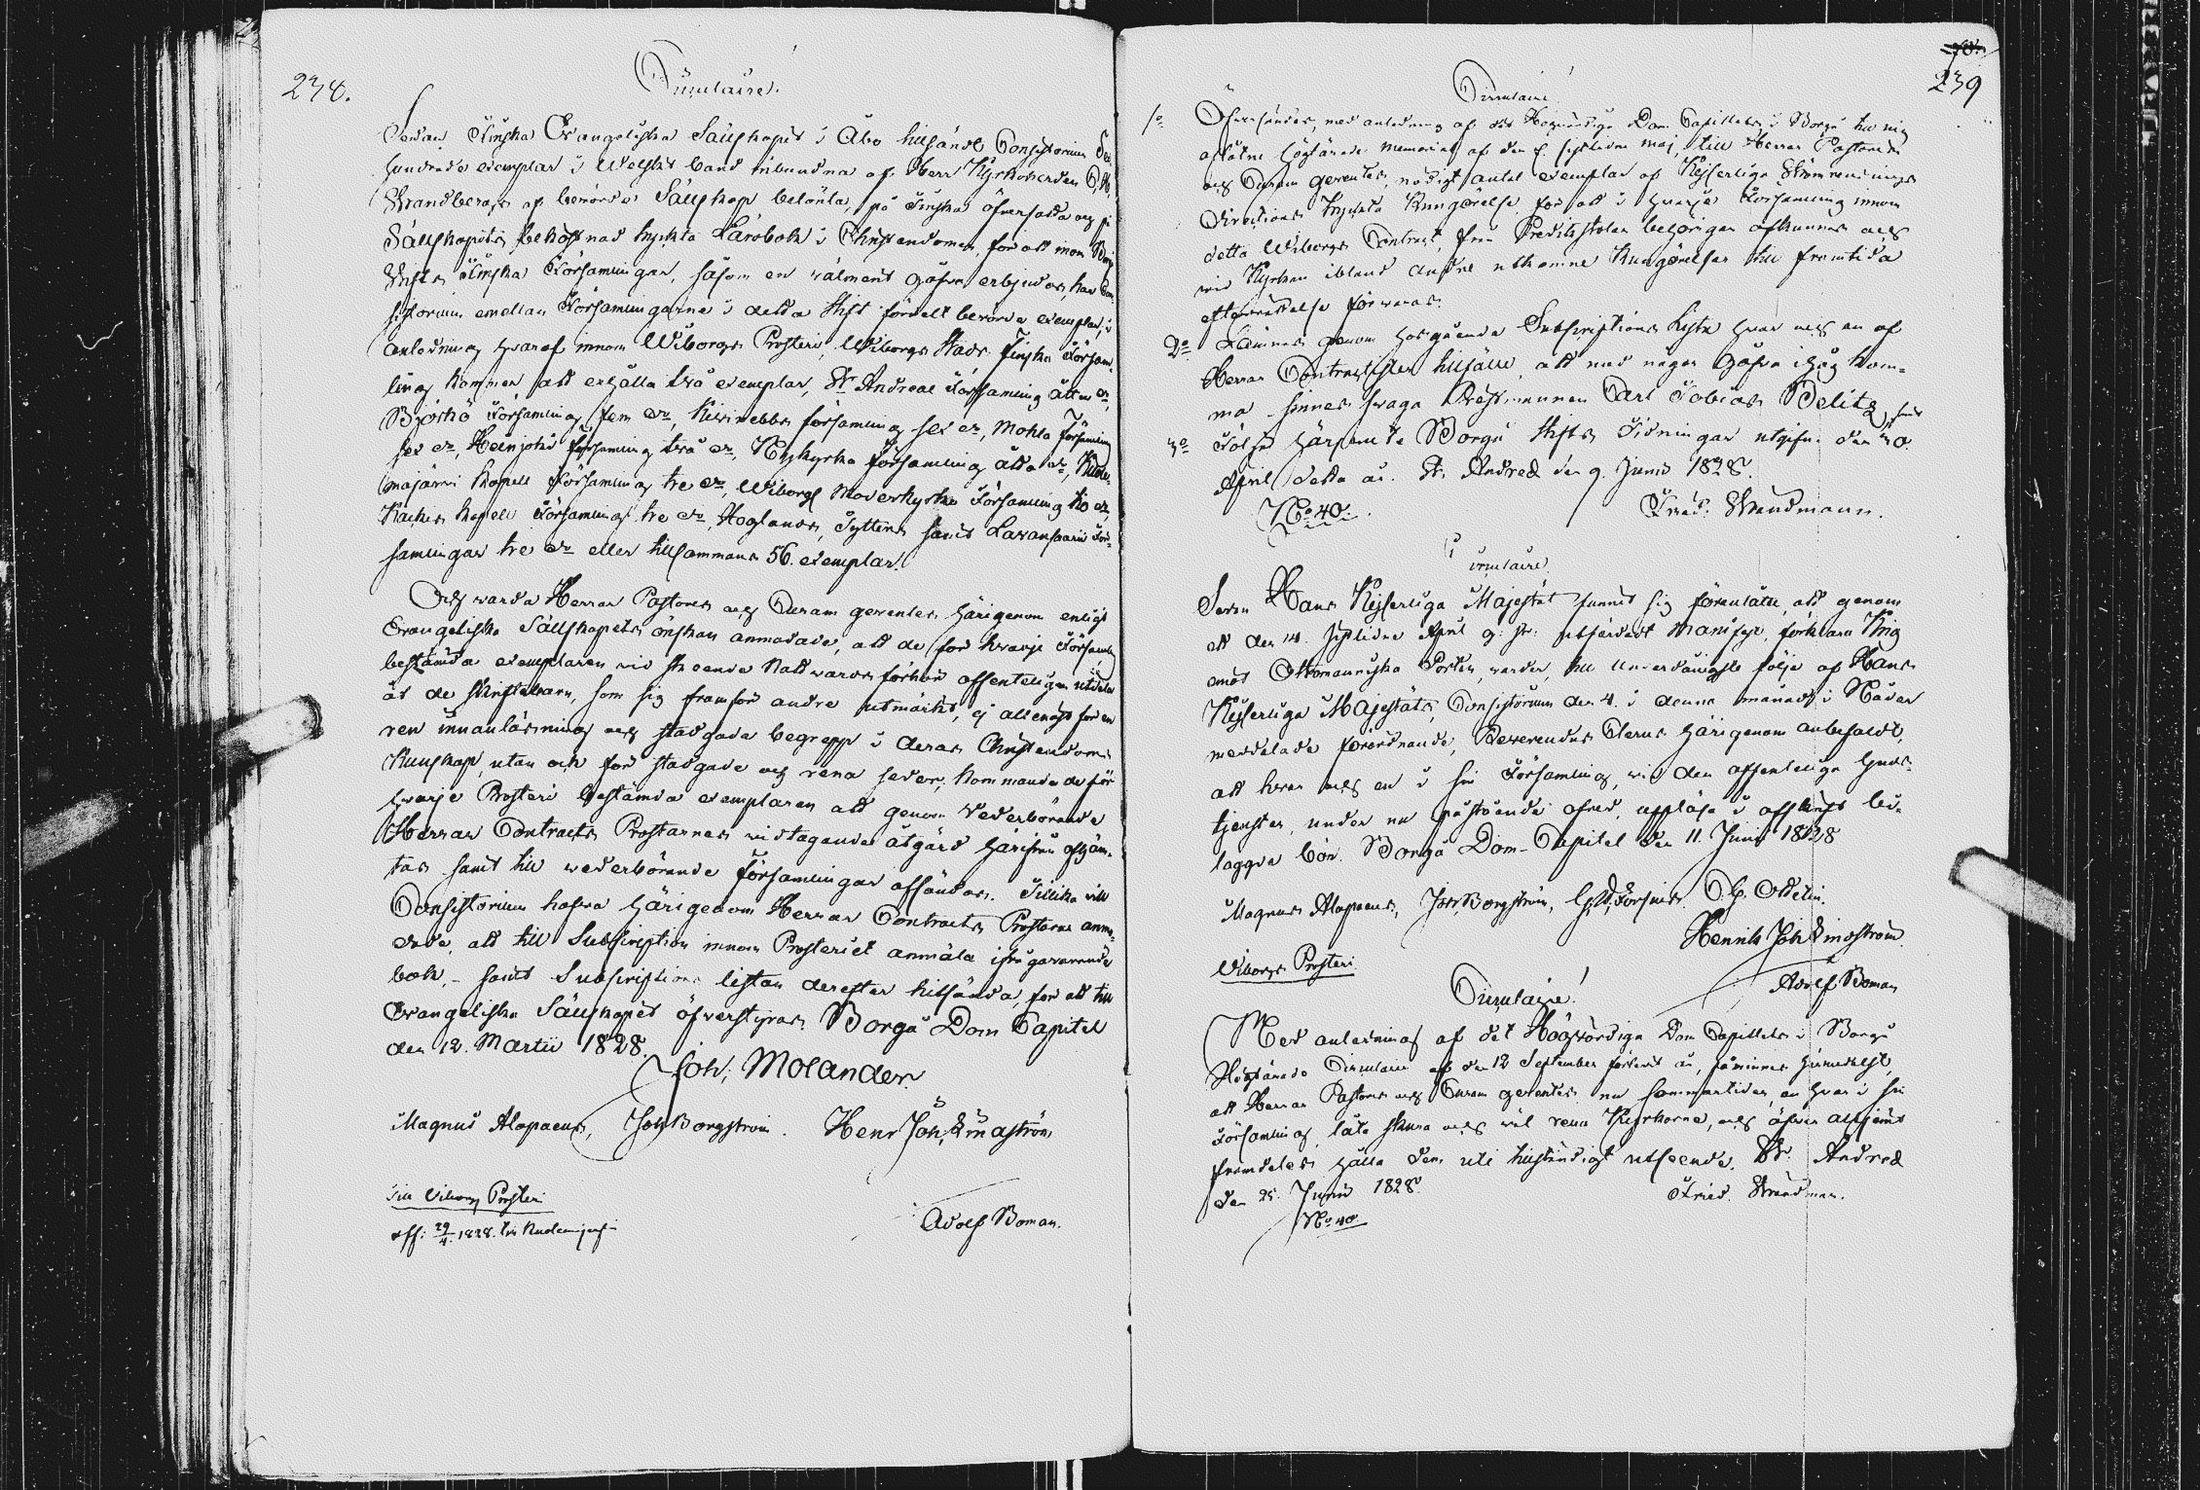 238.
Circulaire!
Sedan Finska Evangeliska Sällskapet i Åbo hitsändt Consistorium
hundrade exemplar i Welskt band inbundna af Herr Kyrkoherden
Strandbergs af berörde Sällskap belönta, på Finska öfversatta och på
Sällskapets bekostnad tryckta Lärobok i Christendomen, för att inom
Stifts Finska Församlingar, såsom en välment gåfva erbjudas, har Con-
sistorium emellan Församlingarne i detta Stift fördelt berörde exemplar, i
anledning hvaraf innom Wiborgs Prosteri, Wiborgs Stads Finska Försam-
ling kommer att erhålla två exemplar, St Andreae Församling åtta ex,
Björkö Församling fem ex, Kivinebbs församling sex ex, Mohla Församling
sex ex, Heinjoki församling två ex, Nykyrka församling åtta ex,
majärvi Kapell Församling tre ex, Wiborgs Moderkyrko Församling tio ex,
Kackis Kapell Församling tre ex, Hoglands, Tytters samt Lavansaari För-
samlingar tre ex eller tillsammans 56. exemplar.
Och warda Herrar Pastores och Curam gerentes härigenom enligt
Evangeliska Sällskapets önskan anmodade, att de för hvarje Församling
bestämda exemplaren vid skeende Nattvards förhör offenteligen utdela
åt de Skriftebarn, som sig framför andre utmärkt, ej allenast för en
ren innanläsning och stadgade begrepp i deras Christendoms
Kunskap, utan ock för stadgade och rena seder; Kommande de för
hvarje Prosteri bestämda exemplaren att genom Vederbörande
Herrar Contracts Prostarnes vidtagande åtgärd härifrån afhäm-
tas samt till wederbörande församlingar afsändas. Tillika vill
Consistorium hafva härigenom Herrar Contracts Prostarne anmo-
dade, att till Subscription innom Prosteriet anmäla ifrågavarande
bok, - samt Subscriptions listan derefter hitsända, för att till
Evangeliska Sällskapet öfverstyras. Borgå Dom Capitel
den 12. Martii 1828.
Joh: Molander
Magnus Alopaeus, Joh Borgström. Henr Joh Lindström
Till Viborgs Prosteri
Adolf Boman.
aff: 29/4. 1828.
239
Circulaire!
1o Öfversändes, med anledning af det Högvördiga Dom Capitlets i Borgå till mig
aflåtne högtärade Memorial af den sistledne Maj, till Herrar Pastores
och Curam gerentes, nödigt antal exemplar af Kejserliga Strömrensnings
Directions tryckta Kungörelse för att i hvarje Församling innom
detta Wiborgs Contract, från Predikstolen behörigen afkunnas och
wid Kyrkan ibland andre utkomne Kungörelser till framtida
efterrättelse förwaras.
2o Lämnas genom hosgående Subscriptions Lista hvar och en af
Herrar Contractister tillfälle, att med någon gåfva ihåg kom-
ma sinnes svaga Prestmannen Carl Tobias Belitz, samt
3o Följa härjemte Borgå Stifts Tidningar utgifne den 30
April detta år. St. Andreæ den 9. Junii 1828.
No 40.
Fried: Strandmann.
Circulaire
Som Hans Kejserliga Majestät funnit sig föranlåten, att genom
ett den 14. sistlidne April g: st: utfärdadt Manifest, förklara Krig
emot Ottomanniska Porten, warder, till underdånigste följe af Hans
Kejserliga Majestäts, Consistorium den 4. i denna månad i Nåder
meddelade förordnande, Reverendus Clerus härigenom anbefaldt,
att hvar och en i sin Församling, wid den offenteliga Guds-
tjensten, under nu påstående ofred, uppläsa i afskrift bi-
laggda bön. Borgå Dom-Capitel den 11. Junii 1828
Magnus Alopaeus, Joh Borgström, G. A. Forsius. C. G. Ottelin.
Henrik Joh Lindström
Viborgs Prosteri
Adolf Boman
Circulaire!
Med anledning af det Högvördiga Dom Capitlets i Borgå
Högtärade Circulaire af den 12 September förledit år, påminnes härmedelst,
att Herrar Pastores och Curam gerentes nu sommartiden, en hvar i sin
Församling, låta skura och väl rena Kyrkorne, och äfven allgemt
framdeles hålla dem uti anständigt utseende. St. Andreæ
den 25. Junii 1828.
Fried. Strandman.
No 40